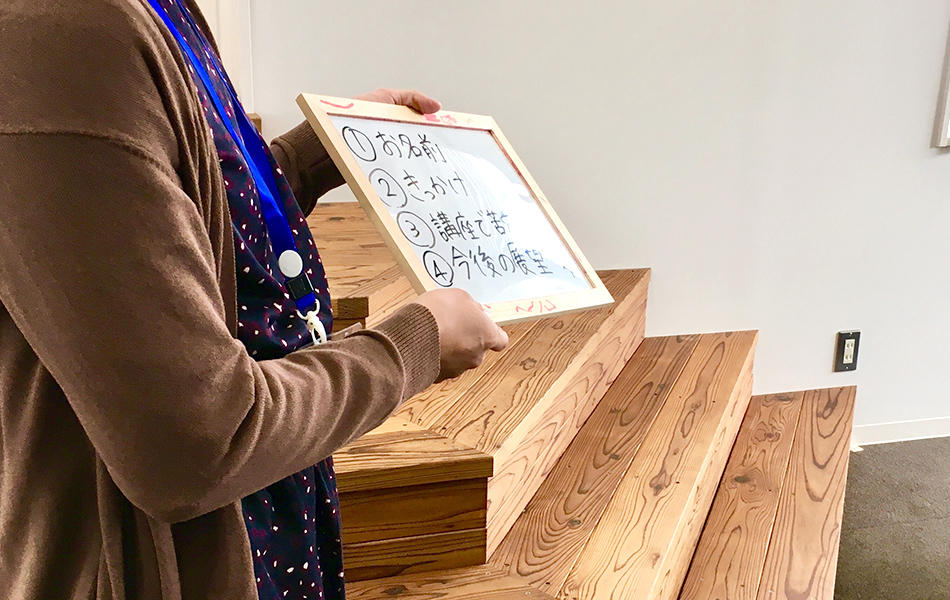 ①お名前
②きっかけ
③講座で苦
④今後の展望